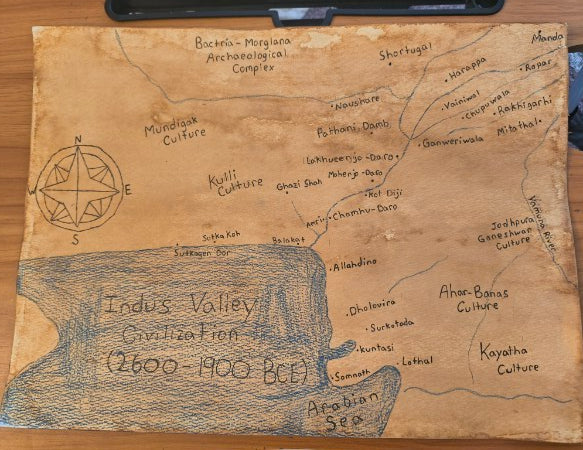 Bactria-Morgiana
Archaeological
Complex
Shortugai
Manda
Harappa
Ropar
Naushare
Vainiwal
Chupuwala
Rakhigarhi
Mundigak
Culture
Pathani Damb
Mitathal
Ganweriwala
Lakhueenjo-Daro
Kulli
Culture
Ghazi Shah
Mohenjo-Daro
Kot Diji
N
W
E
S
Amri
Chamhu-Daro
Yamuna River
Sutka Koh
Sutkagen Dor
Balakat
Jodhpura
Ganeshwar
Culture
Allahdino
Indus Valley
Civilization
(2600-1900 BCE)
Dholavira
Surkotada
Kuntasi
Lothal
Somnath
Ahar-Banas
Culture
Kayatha
Culture
Arabian
Sea